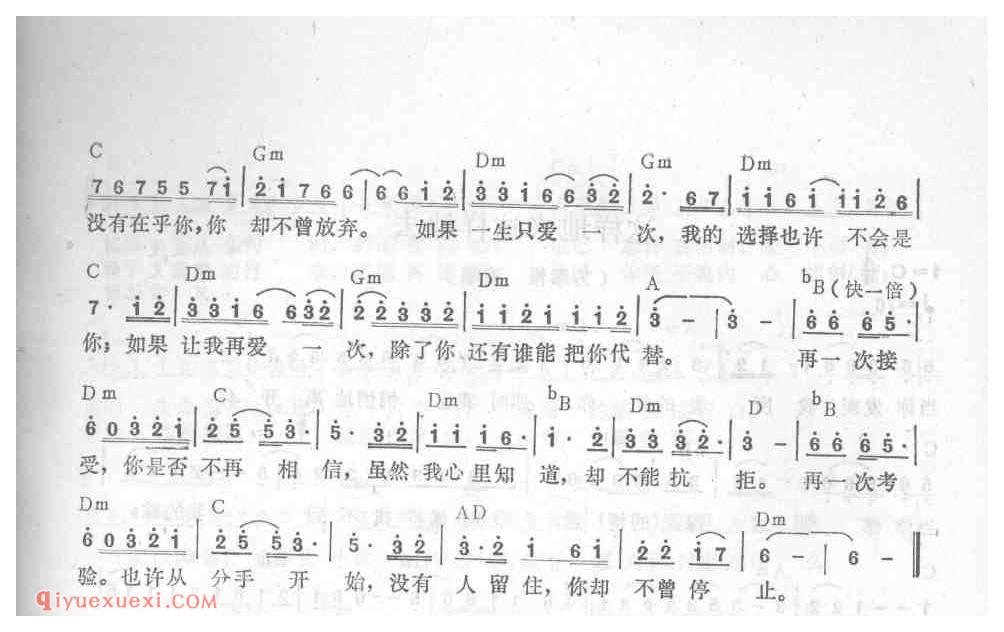 C Gm Dm Gm Dm
7 6 7 5 5 7 i | 2 i 7 6 6 | 6 6 i 2 | 3 3 i 6 6 3 2 | 2 · 6 7 | i i 6 i i i 2 6 |
没有在乎你,你 却不曾放弃。 如果 一生只爱 一 次,我的 选择也许 不会是
C Dm Gm Dm A bB(快一倍)
7 · i 2 | 3 3 i 6 6 3 2 | 2 2 3 3 2 | i i 2 i i i 2 | 3 - | 3 - | 6 6 6 5 · |
你;如果 让我再爱 一 次,除了你 还有谁能 把你代 替。 再一 次接
Dm C Dm bB Dm D bB
6 0 3 2 i | 2 5 5 3 · | 5 · 3 2 | i i i 6 · | i · 2 | 3 3 3 2 · | 3 - | 6 6 6 5 · |
受,你是否 不再 相 信,虽然 我心 里知 道,却 不能 抗 拒。 再一 次考
Dm C AD Dm
6 0 3 2 i | 2 5 5 3 · | 5 · 3 2 | 3 · 2 i 6 i | 2 2 i 7 | 6 - | 6 - ‖
验。也许从 分手 开 始,没有 人 留 住,你却 不曾 停 止。
qiyuexuexi.com